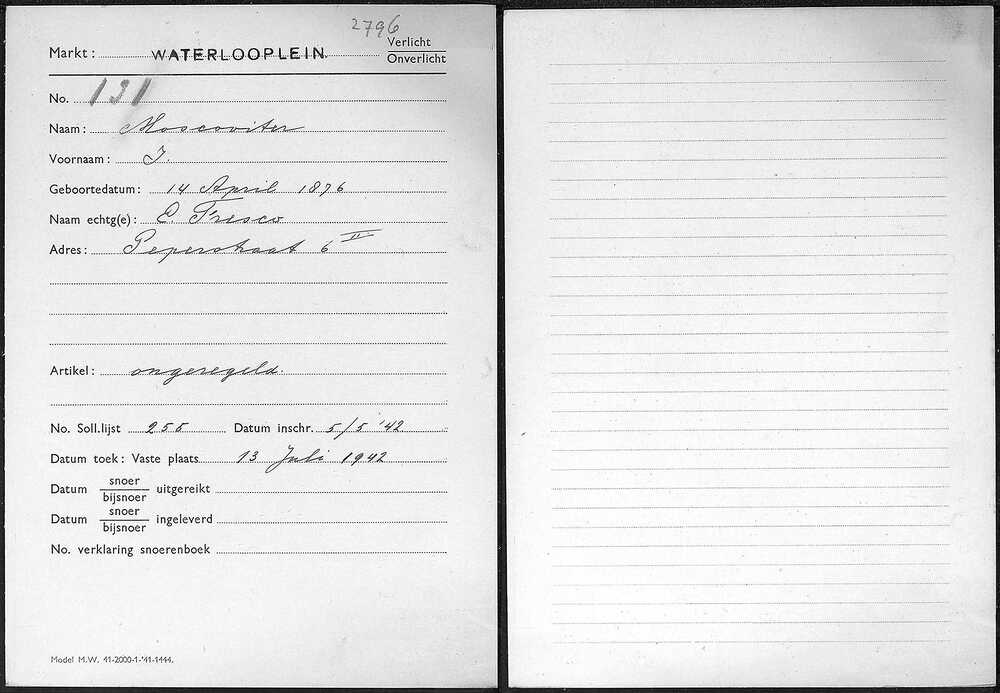 2796
Markt: WATERLOOPLEIN. Verlicht
Onverlicht
No. 131
Naam: Moscoviter
Voornaam: I.
Geboortedatum: 14 April 1876
Naam echtg(e): E. Fresco
Adres: Peperstraat 6 II
Artikel: ongeregeld.
No. Soll.lijst 255 Datum inschr. 5/5 '42
Datum toek: Vaste plaats 13 Juli 1942
Datum snoer
bijsnoer uitgereikt
Datum snoer
bijsnoer ingeleverd
No. verklaring snoerenboek
Model M.W. 41-2000-1-'41-1444.